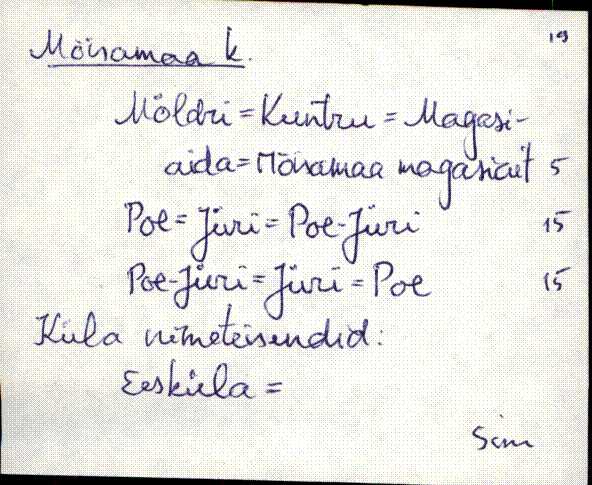 19
Mõisamaa k.
Möldri = Kuntru = Magasi-
aida = Mõisamaa magasiait 5
Poe = Jüri = Poe-Jüri 15
Poe-Jüri = Jüri = Poe 15
Küla nimeteisendid:
Eesküla =
Sim